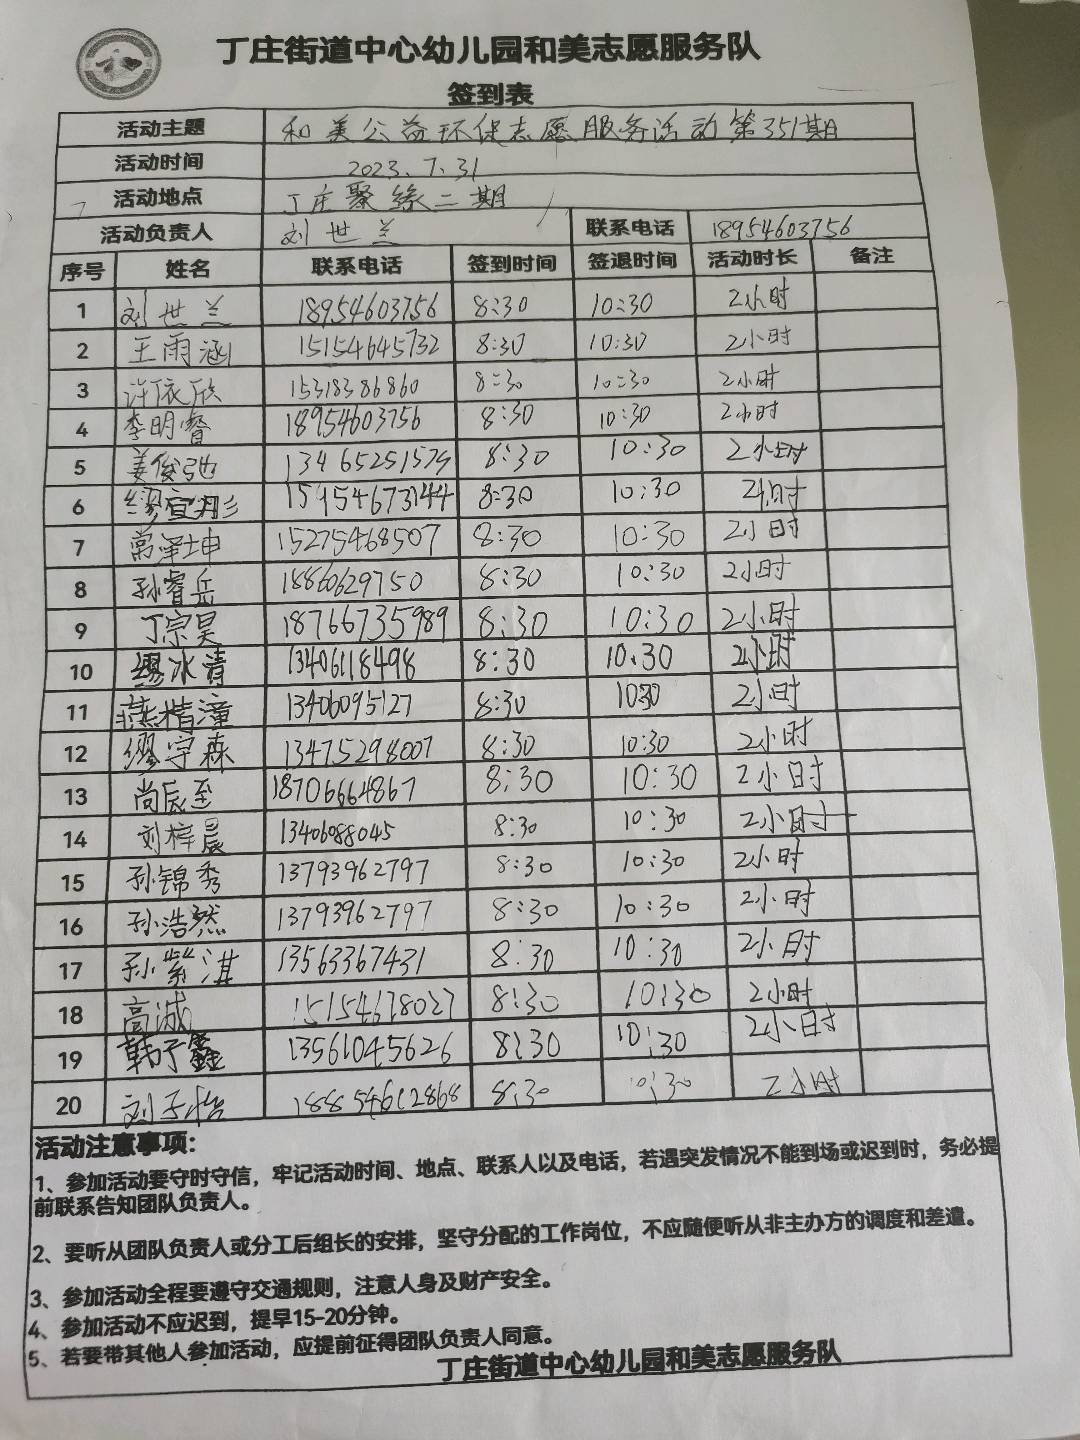 和
丁庄街道中心幼儿园和美志愿服务队
签到表
活动主题 和美公益环保志愿服务活动第351期
活动时间 2023.7.31
活动地点 丁庄聚缘二期
活动负责人 刘世兰 联系电话 18954603756
序号 姓名 联系电话 签到时间 签退时间 活动时长 备注
1 刘世兰 18954603756 8:30 10:30 2小时
2 王雨涵 15154645732 8:30 10:30 2小时
3 许依欣 15318386860 8:30 10:30 2小时
4 李明睿 18954603756 8:30 10:30 2小时
5 姜俊弛 13465251579 8:30 10:30 2小时
6 缪宜彤 15954673144 8:30 10:30 2小时
7 常泽坤 15275468507 8:30 10:30 2小时
8 孙睿岳 18860629750 8:30 10:30 2小时
9 丁宗昊 18766735989 8:30 10:30 2小时
10 缪冰清 13406118498 8:30 10:30 2小时
11 燕精潼 13406095127 8:30 1030 2小时
12 缪宇森 13475298007 8:30 10:30 2小时
13 尚辰至 18706664867 8:30 10:30 2小时
14 刘梓晨 1340688045 8:30 10:30 2小时
15 孙锦秀 13793962797 8:30 10:30 2小时
16 孙浩然 13793962797 8:30 10:30 2小时
17 孙紫淇 13563367431 8:30 10:30 2小时
18 高诚 15154678027 8:30 10:30 2小时
19 韩子鑫 13561045626 8:30 10:30 2小时
20 刘子怡 18854612868 8:30 10:30 2小时
活动注意事项:
1、参加活动要守时守信，牢记活动时间、地点、联系人以及电话，若遇突发情况不能到场或迟到时，务必提
前联系告知团队负责人。
2、要听从团队负责人或分工后组长的安排，坚守分配的工作岗位，不应随便听从非主办方的调度和差遣。
3、参加活动全程要遵守交通规则，注意人身及财产安全。
4、参加活动不应迟到，提早15-20分钟。
5、若要带其他人参加活动，应提前征得团队负责人同意。
丁庄街道中心幼儿园和美志愿服务队